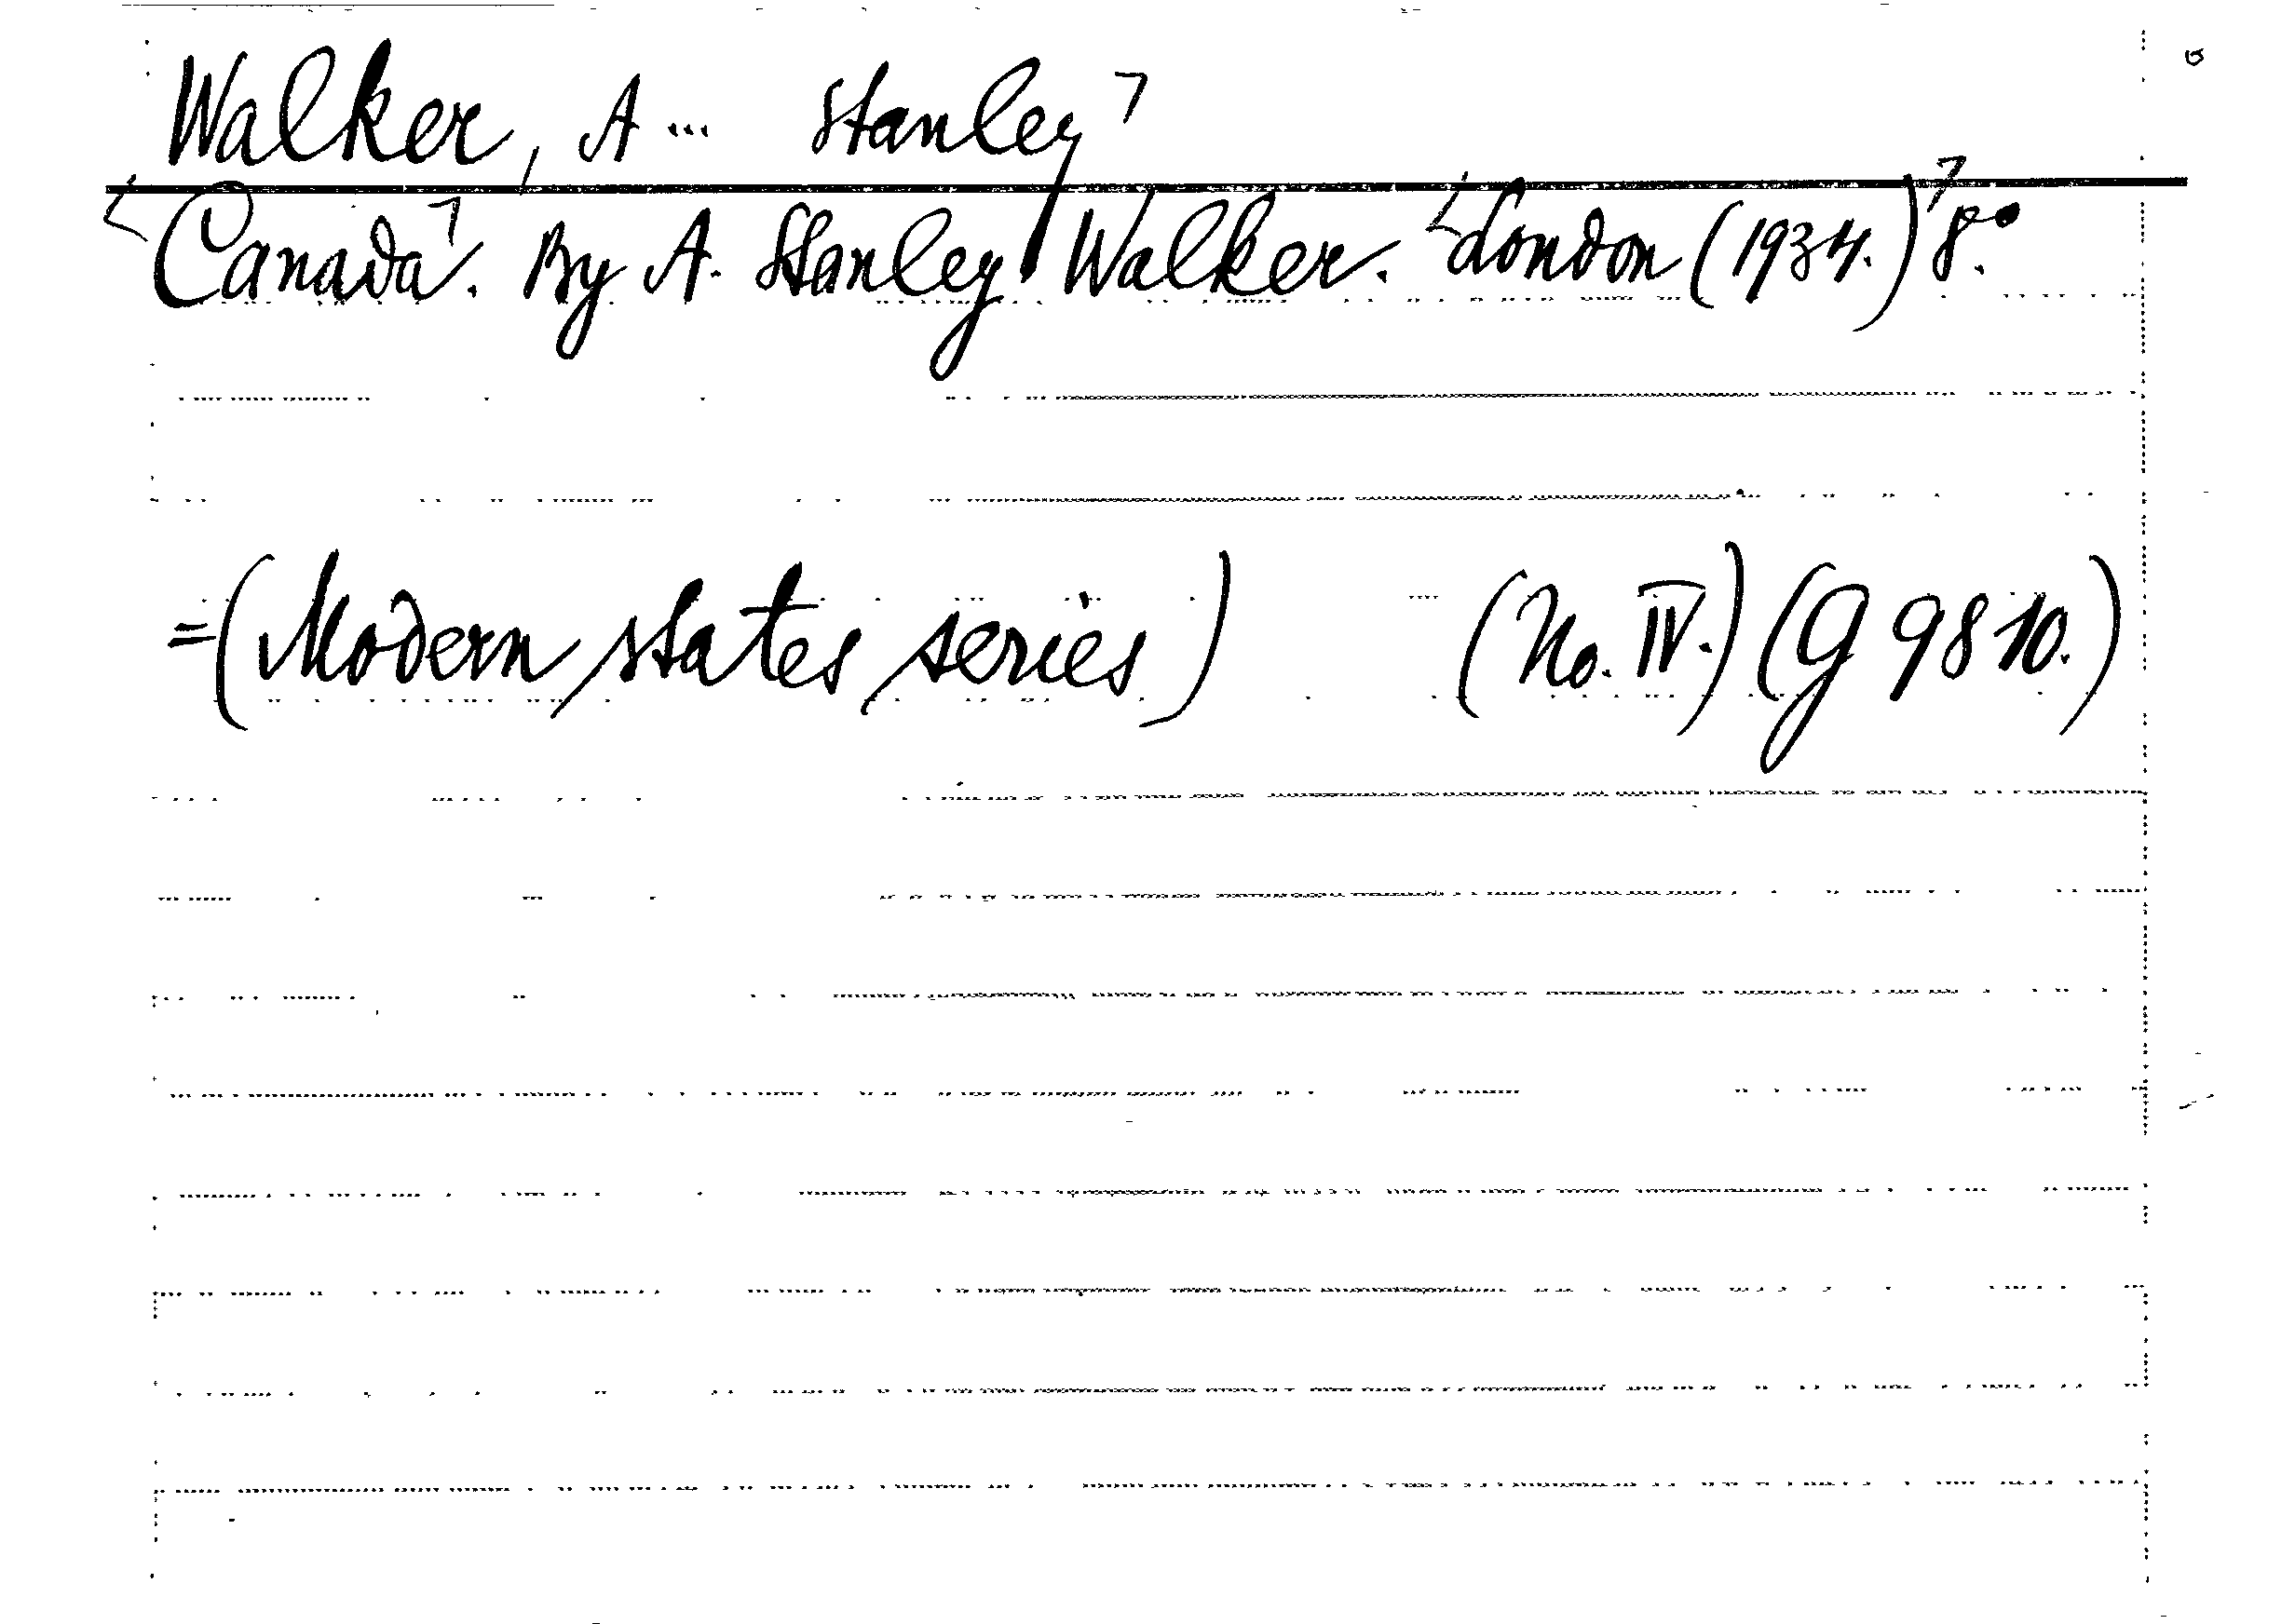 Walker, A... Stanley
Canada. By A. Stanley Walker. London (1934.) 8°.
=(Modern states series) (No. IV.) (G 9810.)